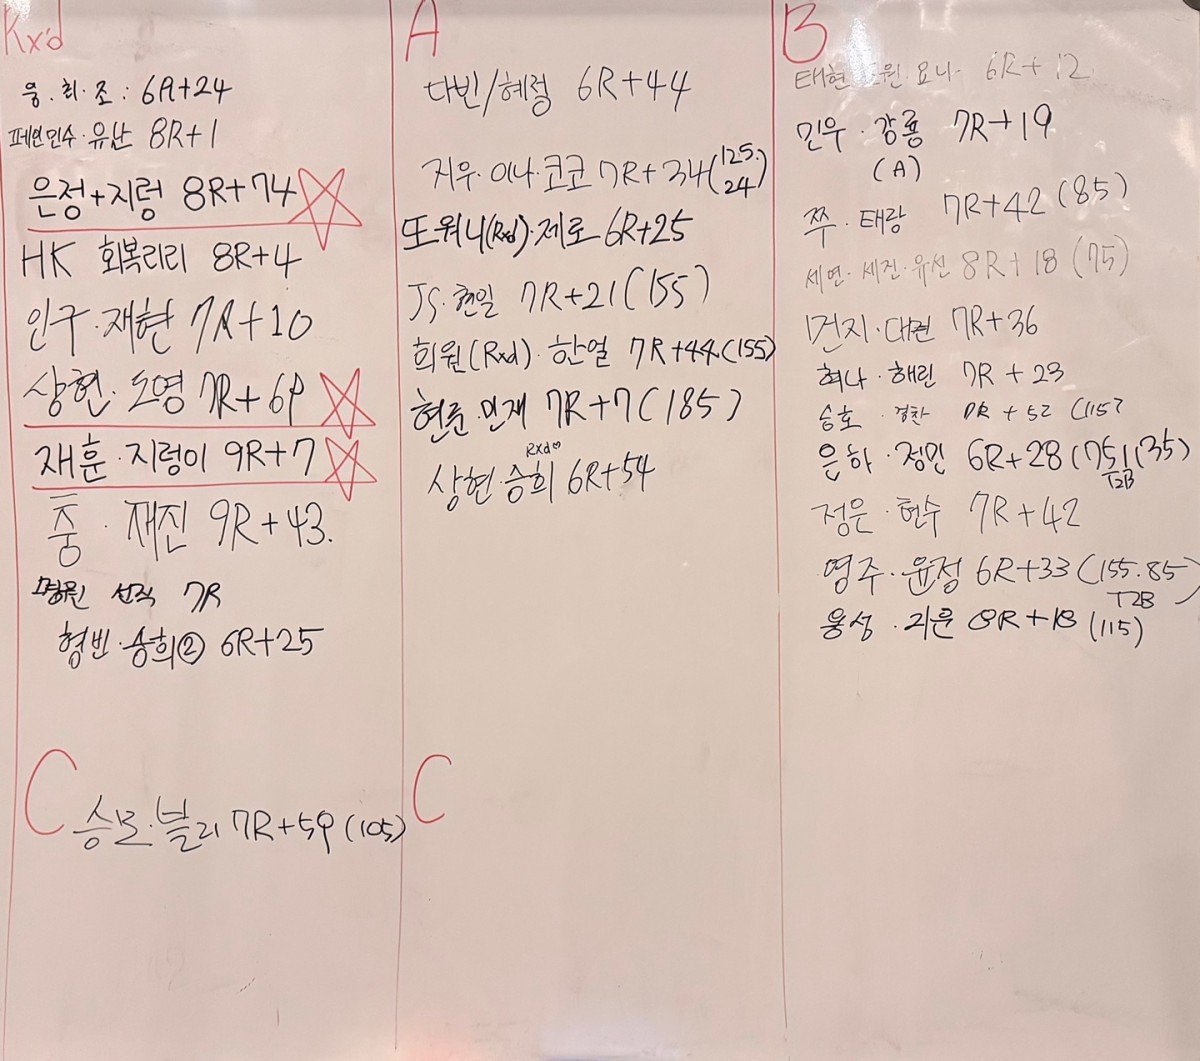 Rx'd
웅.최.조: 6R+24
민수·유난 8R+1
은정+지렁 8R+74
HK 회복리리 8R+4
인구·재현 7R+10
상현·도영 7R+69
재훈·지렁이 9R+7
쭝·재진 9R+43.
명원 선직 7R
형빈·승희② 6R+25
C
승모·블리 7R+59 (105)
A
다빈/혜정 6R+44
지우·이나·코코 7R+34(125. 24)
또워니(Rxd)·제로 6R+25
JS·현일 7R+21(155)
희원(Rxd)·한얼 7R+44(155)
현준·민재 7R+7(185)
Rxd♡
상현·승희 6R+54
C
B
태현 도원·요나 6R+12
민우·강룡 7R+19
(A)
쭈·태랑 7R+42(85)
세연·세진·유선 8R+18(75)
건지·대권 7R+36
혀나·해린 7R+23
승호·경찬 R+52 (115)
은하·정민 6R+28(75)(35)
T2B
정은·현수 7R+42
영주·윤정 6R+33(155.85)
T2B
웅성·지훈 8R+18 (115)